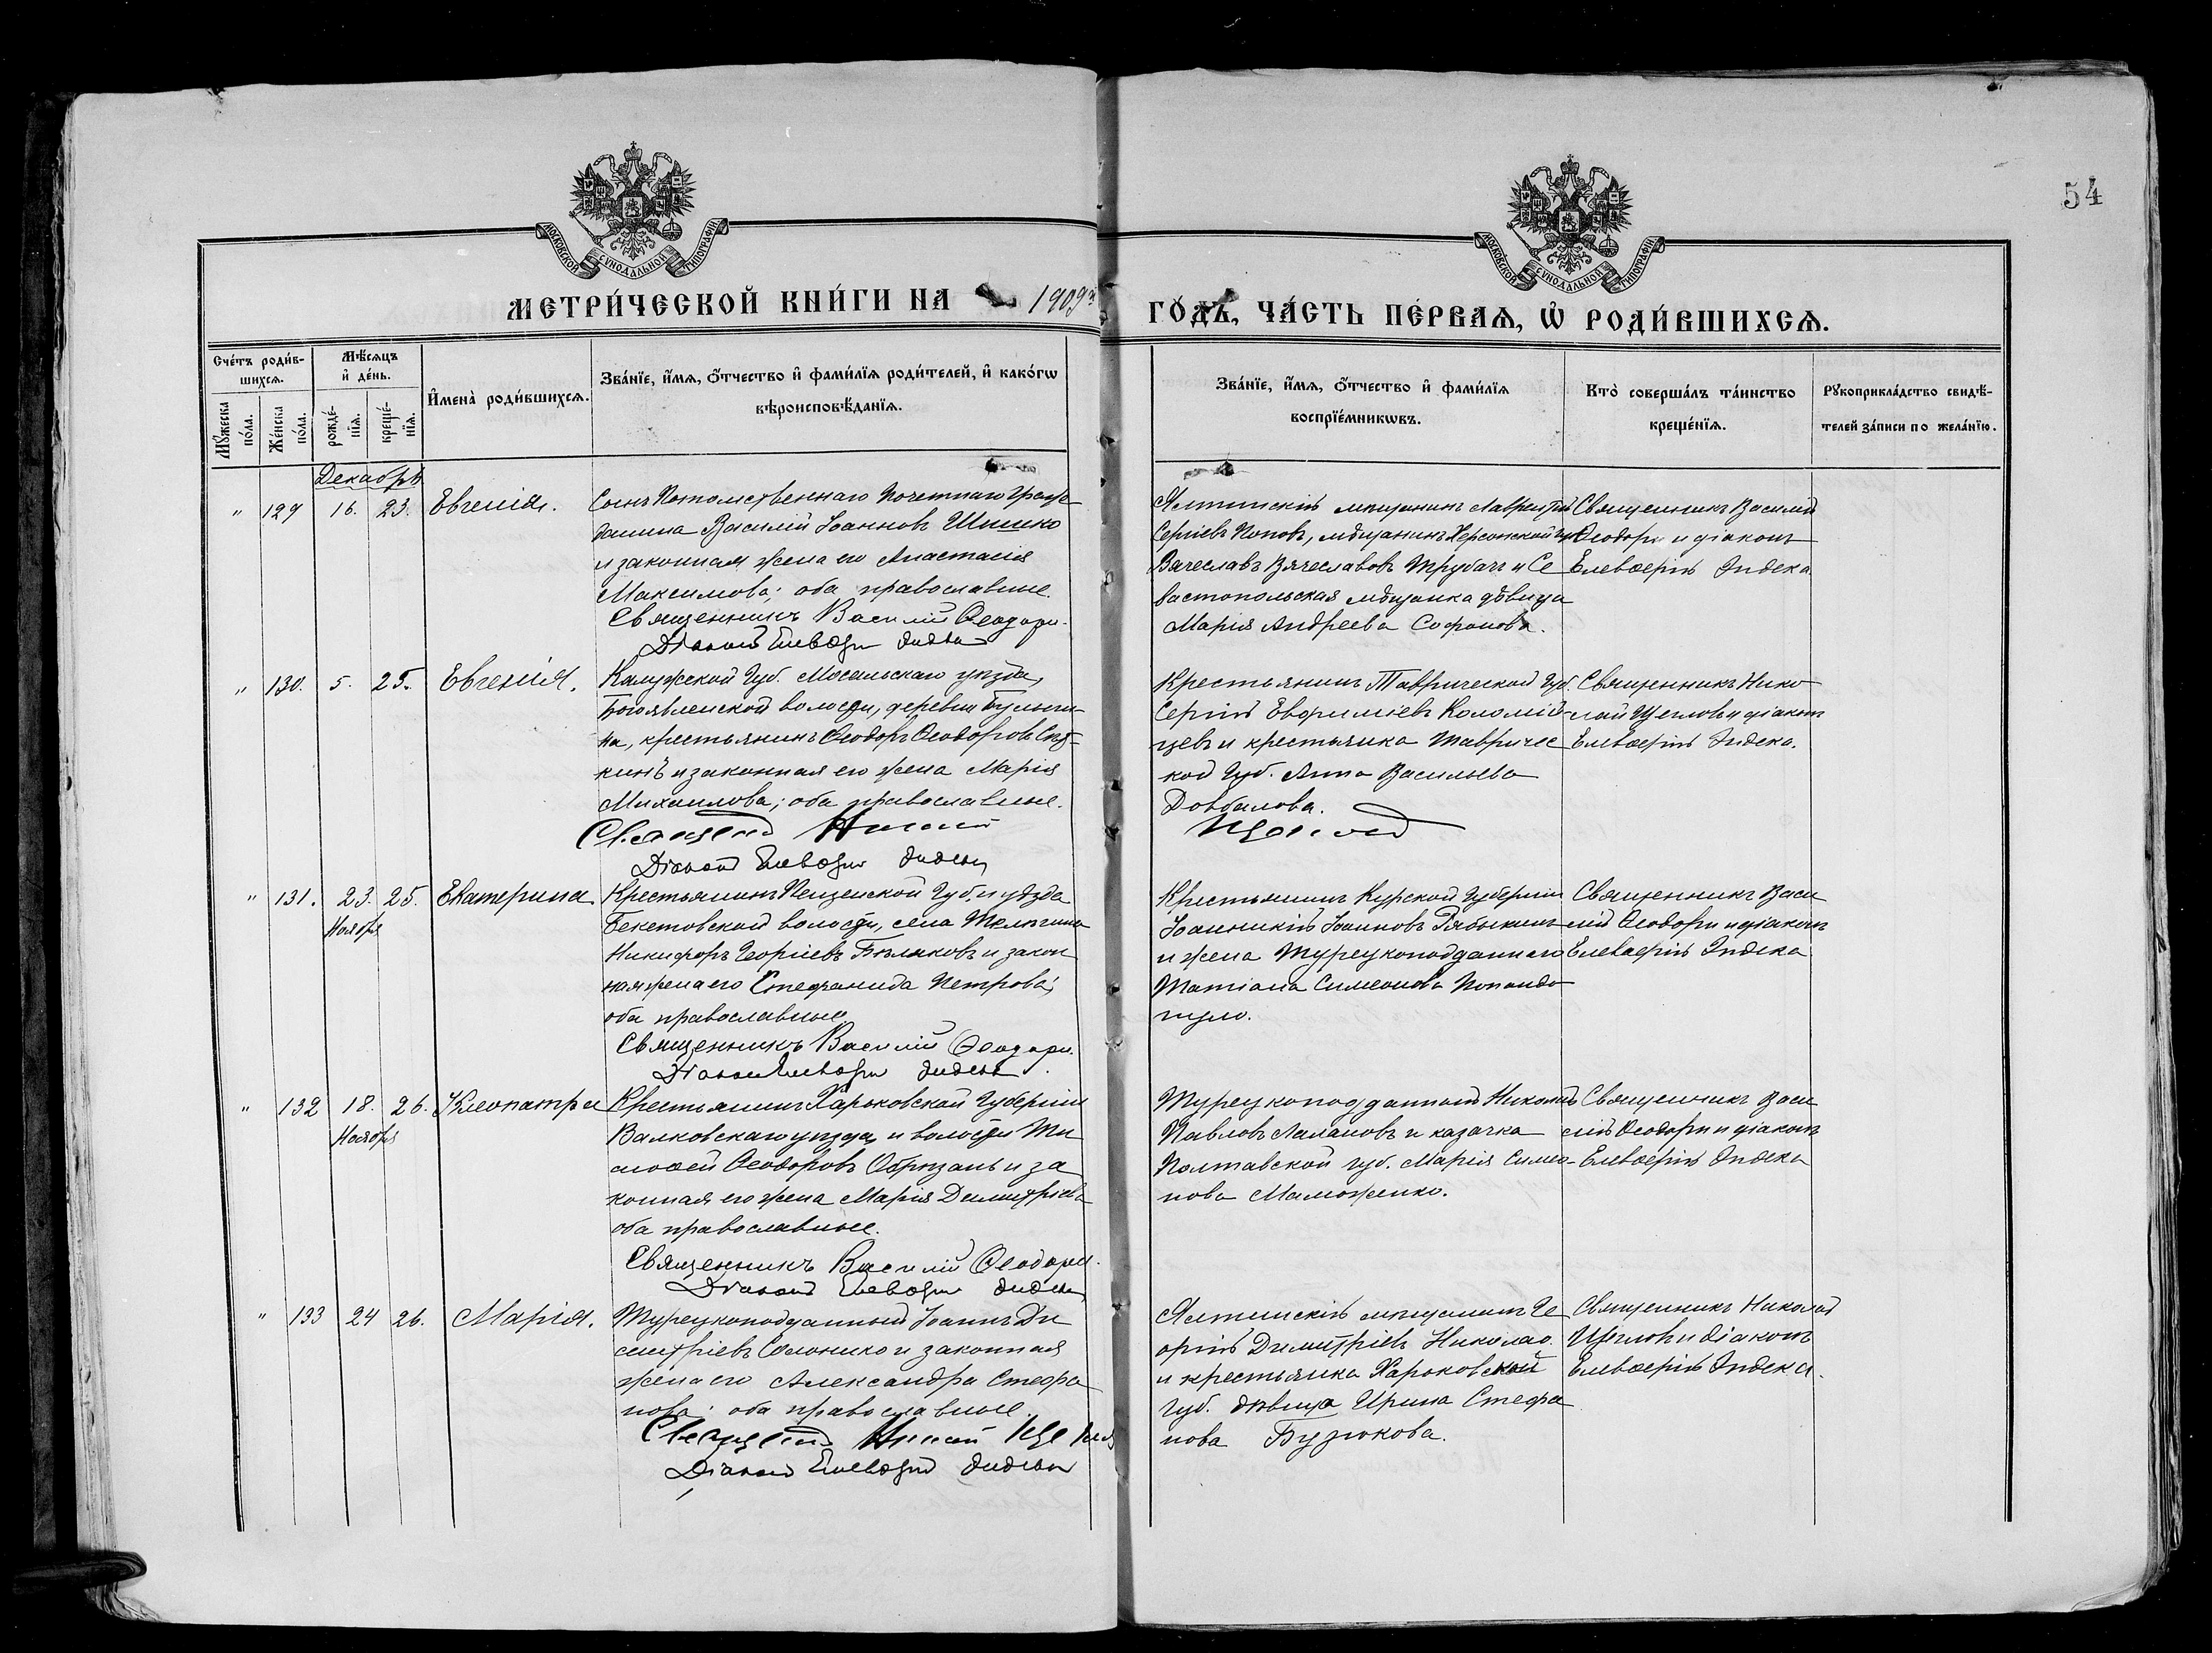 54
МОСКОВСКОЙ СѴНОДАЛЬНОЙ ТИПОГРАФІИ
МОСКОВСКОЙ СѴНОДАЛЬНОЙ ТИПОГРАФІИ
МЕТРИ́ЧЕСКОЙ КНИ́ГИ НА 1909й
ГО́ДЪ, ЧА́СТЬ ПЕ́РВАѦ, Ѡ РОДИ́ВШИХСѦ.
Сче́тъ роди́в-
шихсѧ.
Мꙋ́жеска по́ла.
Же́нска по́ла.
Мѣ́сѧцъ
и҆ де́нь.
рожде́-
нїѧ.
креще́-
нїѧ.
И҆мена̀ роди́вшихсѧ.
Зва́нїе, и҆́мѧ, ѻ҆́тчество и҆ фами́лїѧ роди́телей, и҆ како́гѡ
вѣроисповѣ́данїѧ.
Зва́нїе, и҆́мѧ, ѻ҆́тчество и҆ фами́лїѧ
воспрїе́мникѡвъ.
Кто̀ соверша́лъ та́инство
креще́нїѧ.
Рꙋкоприкла́дство свидѣ́-
телей за́писи по жела́нїю.
Декабрь
" 129 16. 23. Евгенія.
Сынъ Потомственнаго Почетнаго Граж-
данина Василій Іоанновъ Шишко
и законная жена его Анастасія
Максимова; оба православные.
Священникъ Василій Ѳеодори.
Діаконъ Елевѳерій Индека
Ялтинскій мѣщанинъ Лаврентій
Сергіевъ Поповъ, мѣщанинъ Херсонской губ.
Вячеславъ Вячеславовъ Трубачъ и Се
вастопольская мѣщанка дѣвица
Марія Андреева Софонова.
Священникъ Василій
Ѳеодори и діаконъ
Елевѳерій Индека
" 130. 5. 25. Евгенія.
Калужской Губ. Мосальскаго уѣзда,
Богоявленской волости, деревни
на, крестьянинъ Ѳеодоръ Ѳеодоровъ
кинъ и законная его жена Марія
Михаилова; оба православные.
Священникъ Николай Щегловъ
Діаконъ Елевѳерій Индека
Крестьянинъ Таврической Губ.
Сергій Евфиміевъ Коломій-
цевъ и крестьянка Тавричес
кой Губ. Анна Васильева
Довбалова.
Священникъ Нико
лай Щегловъ и діаконъ
Елевѳерій Индека.
" 131. 23. 25. Екатерина
Ноября
Крестьянинъ Пензенской Губ. и уѣзда
Бекетовской волости, села
Никифоръ Георгіевъ Бѣляковъ и закон
ная жена его Стефанида Петрова;
оба православные.
Священникъ Василій Ѳеодори.
Діаконъ Елевѳерій Индека.
Крестьянинъ Курской Губерніи
Іоанникій Іоанновъ Рябыкинъ
и жена Турецкоподданнаго
Татіана Симеонова Попандо
пуло.
Священникъ Васи
лій Ѳеодори и діаконъ
Елевѳерій Индека
" 132 18. 26. Клеопатра
Ноября
Крестьянинъ Харьковской Губерніи
Валковскаго уѣзда и волости Ти
моѳей Ѳеодоровъ Обрѣзанъ и за
конная его жена Марія Димитріева
оба православные.
Священникъ Василій Ѳеодори.
Діаконъ Елевѳерій Индека
Турецкоподданный Николай
Павловъ Лалановъ и казачка
Полтавской губ. Марія Симео-
нова Маможенко.
Священникъ Васи
лій Ѳеодори и діаконъ
Елевѳерій Индека
" 133 24 26. Марія.
Турецкоподданный Іоаннъ Ди
митріевъ Солонико и законная
жена его Александра Стефа
нова; оба православные.
Священникъ Николай Щегловъ
Діаконъ Елевѳерій Индека
Ялтинскій мѣщанинъ Ге
оргій Димитріевъ Николао
и крестьянка Харьковской
Губ. дѣвица Ирина Стефа
нова Бузюкова.
Священникъ Николай
Щегловъ и діаконъ
Елевѳерій Индека.